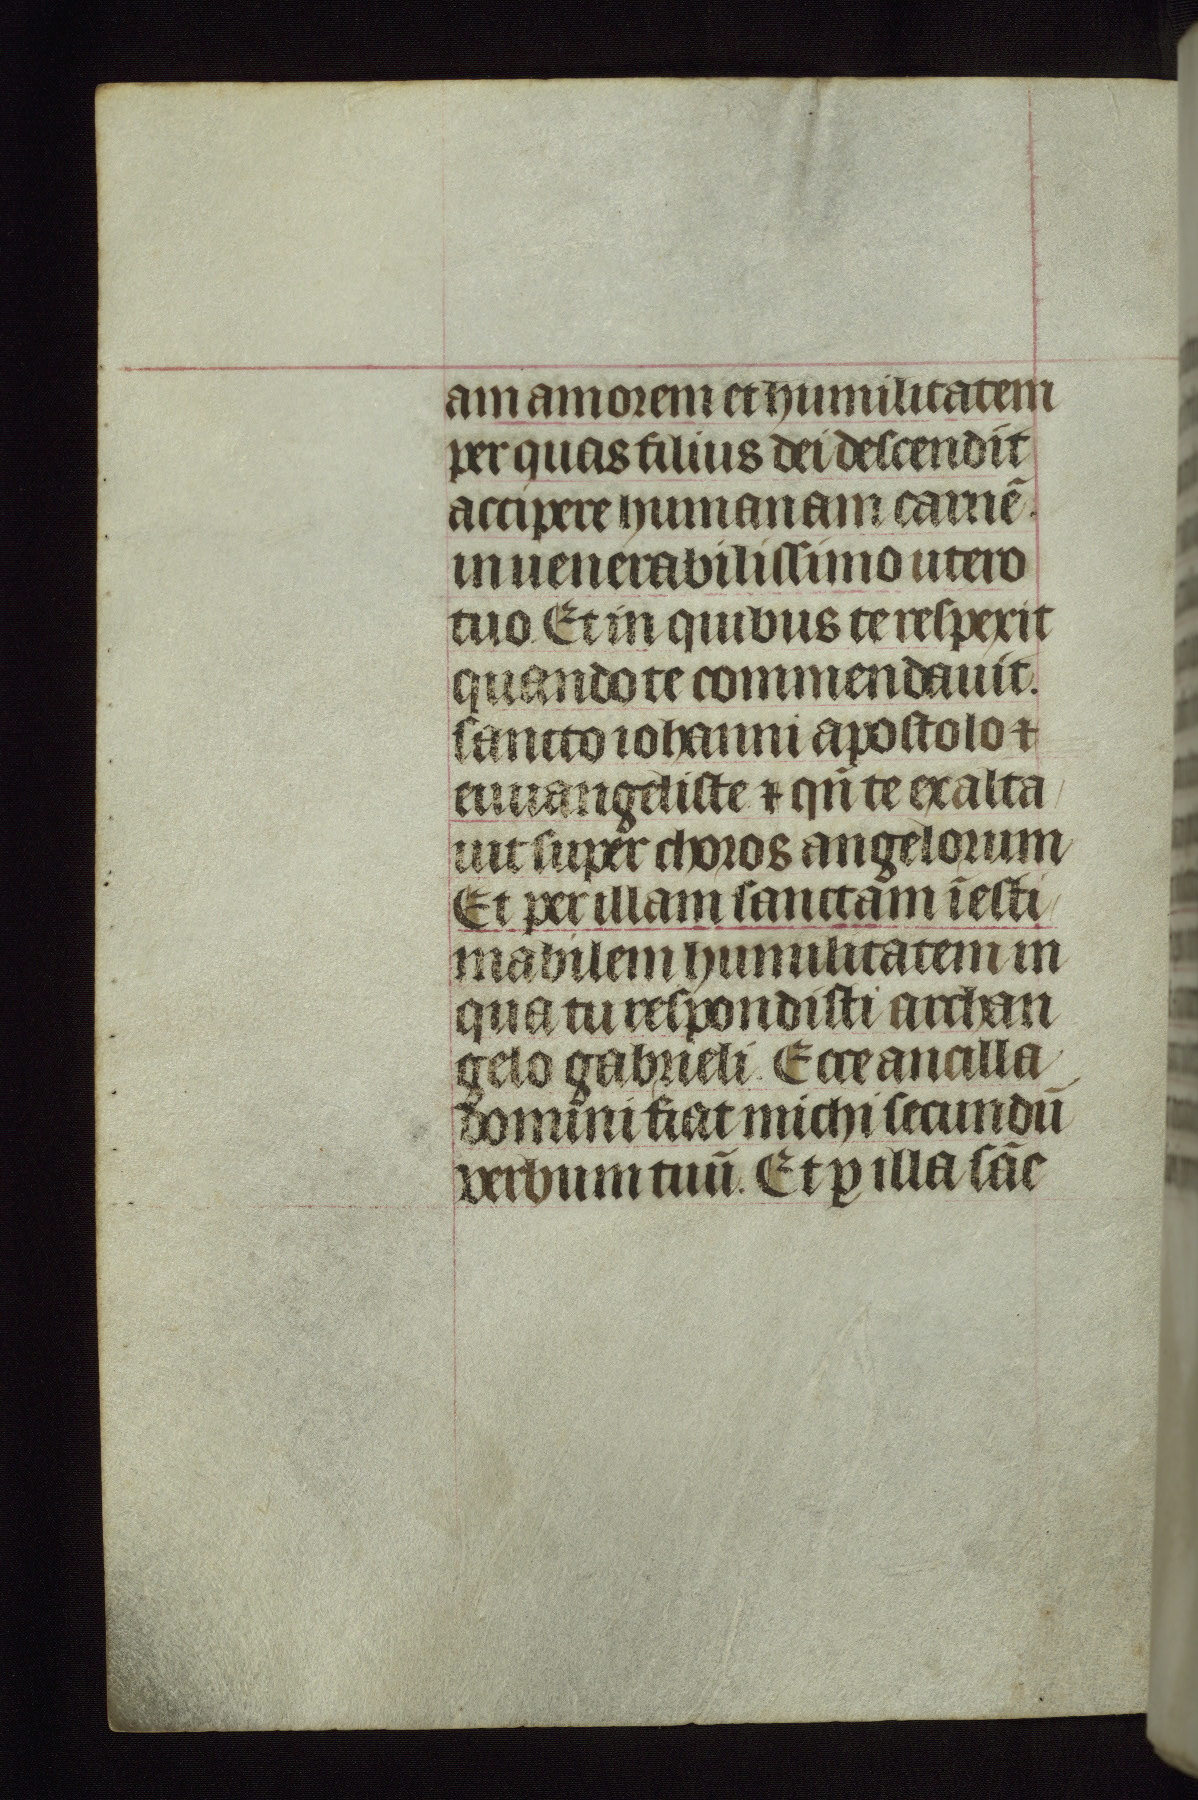 am amorem et humilitatem
per quas filius dei descendit
accipere humanam carnē.
in uenerabilissimo utero
tuo. Et in quibus te respexit
quando te commendauit.
sancto iohanni apostolo ⁊
euuangeliste ⁊ qn̄ te exalta
uit super choros angelorum
Et per illam sanctam īesti
mabilem humilitatem in
qua tu respondisti archan
gelo gabrieli. Ecce ancilla
domini fiat michi secundū
verbum tuū. Et ꝑ illa sāc